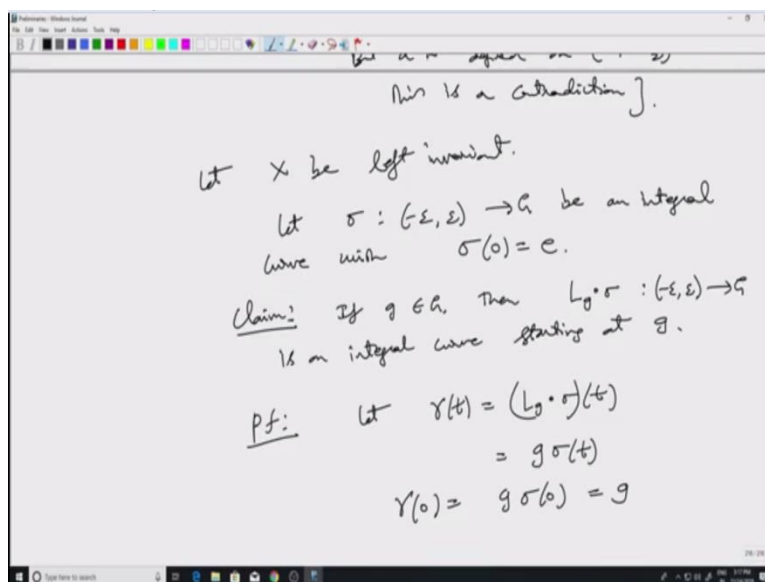 Preliminaries - Windows Journal
File Edit View Insert Actions Tools Help
This is a contradiction].
Let X be left invariant.
Let σ : (-ε, ε) → G be an integral
curve with σ(0) = e.
Claim: If g ∈ G, then L_g ∘ σ : (-ε, ε) → G
is an integral curve starting at g.
Pf: Let γ(t) = (L_g ∘ σ)(t)
= g σ(t)
γ(0) = g σ(0) = g
Type here to search